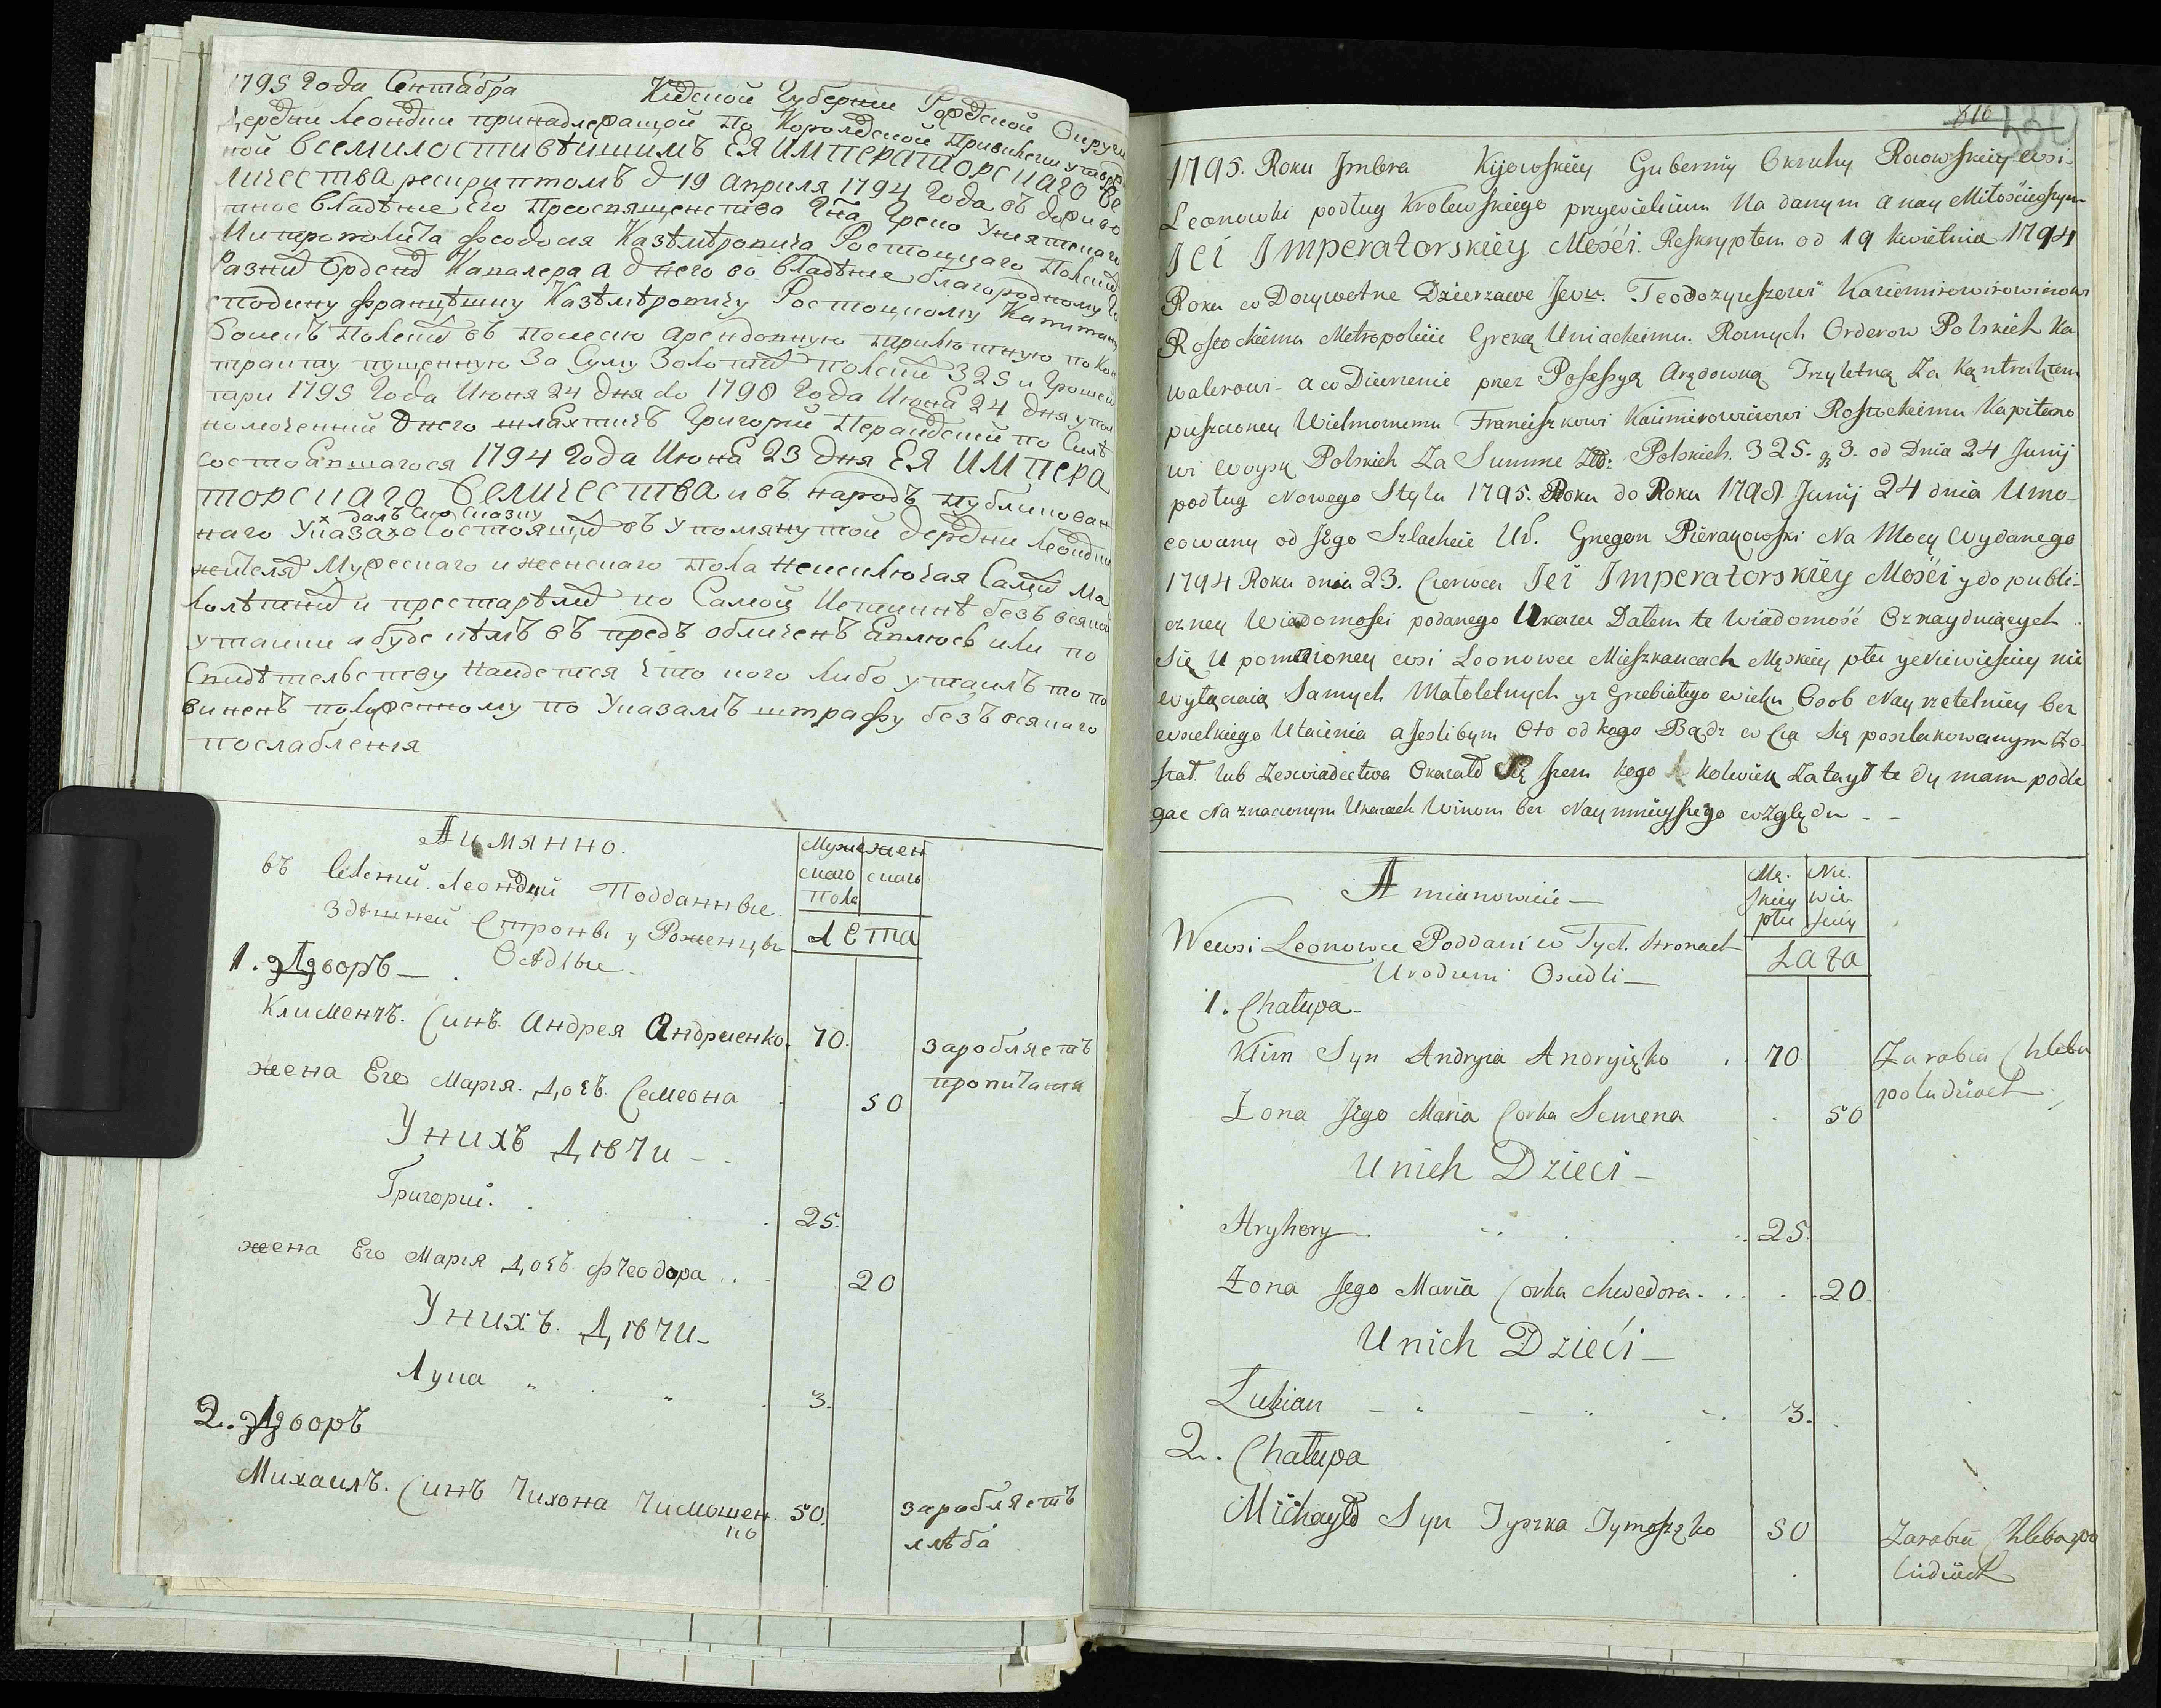 1795 Года Сентабра Киевской Губернии Роѳовской Округи
Деревни Леоновки принадлежащой По Королевской Привилегии утверд
ной ВСЕМИЛОСТИВѢИШИМЪ ЕЯ ИМПЕРАТОРСКАГО ВЕ
ЛИЧЕСТВА рескриптомъ 19 Апреля 1794 Года въ
владѣние Его Преосвященства Греко Униятскаго
Митрополита Феодосия Казѣмѣровича Ростоцкаго Полских
Разних Орденов Кавалера а от него во владѣние благородному Го
сподину Францѣшку Казѣмѣровичу Ростоцкому Капитану
Воискъ Полских въ посесию арендовную трилѣтную по Кон
тракту пущенную За Суму Золотих полских 325 и Грошей
тари 1795 Года Июня 24 дня do 1798 Года Июня 24 дня упол
номоченний от него шляхтичъ Григорий по Силѣ
состоявшагося 1794 Года Июня 23 дня ЕЯ ИМПЕРА
ТОРСКАГО ВЕЛИЧЕСТВА и въ народъ публикован
далъ Сию Сказку
наго Указа о Состоящих въ упомянутой деревни Леоновки
жителях Мужескаго и женскаго Пола неисключая Самих Ма
лолѣтних и престарѣлих по Самой Истиннѣ безъ всякой
утайки а буде кѣмъ въ предъ обличенъ явлюсь или по
Свидѣтельству наидется что кого либо утаилъ то по
виненъ положенному по Указамъ штрафу безъ всякаго
послабления
А имянно.
Муже скаго пола
жен скаго
въ Селений Леоновки Подданные
здѣшней Строны у Роженцы
Осѣдлые
Лета
1. Дворъ —
Климентъ. Синъ Андрея Андриенко. 70. заробляетъ
жена Его Мария. Дочъ Семеона 50 пропитаня
У нихъ Дѣти - -
Григорий. 25.
жена Его Мария Дочъ Фтеодора .. 20
У нихъ. Дѣти -
Лука " " 3.
2. Дворъ
Михаилъ. Синъ Тихона Тимошен 50. заробляетъ
ко хлѣба
816
1795. Roku Kijowskiey Gubernij Okruhy Rowskiey wsi
Leonowki podług Krolewskiego przywielium Na danym a nay Miłościwszym
JEI IMPERATORSKIEY Mości. Reskryptem od 19 Kwietnia 1794
Roku w Dożywotne Dzierzawe Teodozyuszowi
Rostockiemu Metropolicie Greka Uniackiemu. Roznych Orderow Polskich Ka
walerowi - a w Dierzenie przez Posessyą Arędowną Trzyletną Za Kątraktem
puszczoney Wielmoznemu Franciszkowi Kazimirowiczowi Rostockiemu Kapitano
wi woysk Polskich Za Summe Zło: Polskich. 325. g 3. od Dnia 24 Junij
podług Nowego Stylu 1795. Roku do Roku 1798. Junij 24 dnia Umo-
cowany od Jego Szlachcic Ur. Gregorz Na Mocy Wydanego
1794 Roku dnia 23. Czerwca JEI IMPERATORSKIEY Mości y do publi-
czney Wiadomosci podanego Ukazu Dałem te Wiadomość O znayduiących
Się U pomnioney wsi Leonowce Mieszkancach Męskiey płci y Niewieściey nie
wyłączaią Samych Małoletnych yz Grzebiałego wieku Osob Nay rzetelniey bez
wszelkiego Utaienia a Jeslibym Oto od kogo Bądz w Cza Się poszlakowanym
stał. lub Zeswiadectwa Okazało Się szem kogo kolwiek Zataył te dy mam podle
gac Na znaczonym Ukazach Winom bez Nay mnieyszego względu - -
A mianowicie —
Mę. skiey płci
Nie. wie sciey
We wsi Leonowce Poddani w Tych. Stronach
Urodzeni Osiedli —
Lata
1. Chałupa -
Klim Syn Andryia Andryięko . 70. Zarabia Chleba
po ludziach
Zona Jego Maria Corka Semena . 50
U nich Dzieci —
Hryhory 25.
Zona Jego Maria Corka Chwedora . . . . 20.
U nich Dzieci —
Lukian 3.
2. Chałupa
Michayło Syn Tyszka Tymoszęko 50 Zarabia Chleba po
ludziach